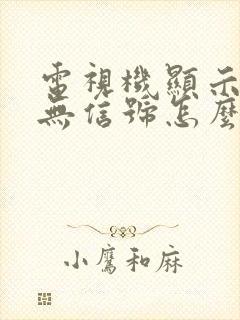 電視機顯示
無信號怎麼
小鷹和麻